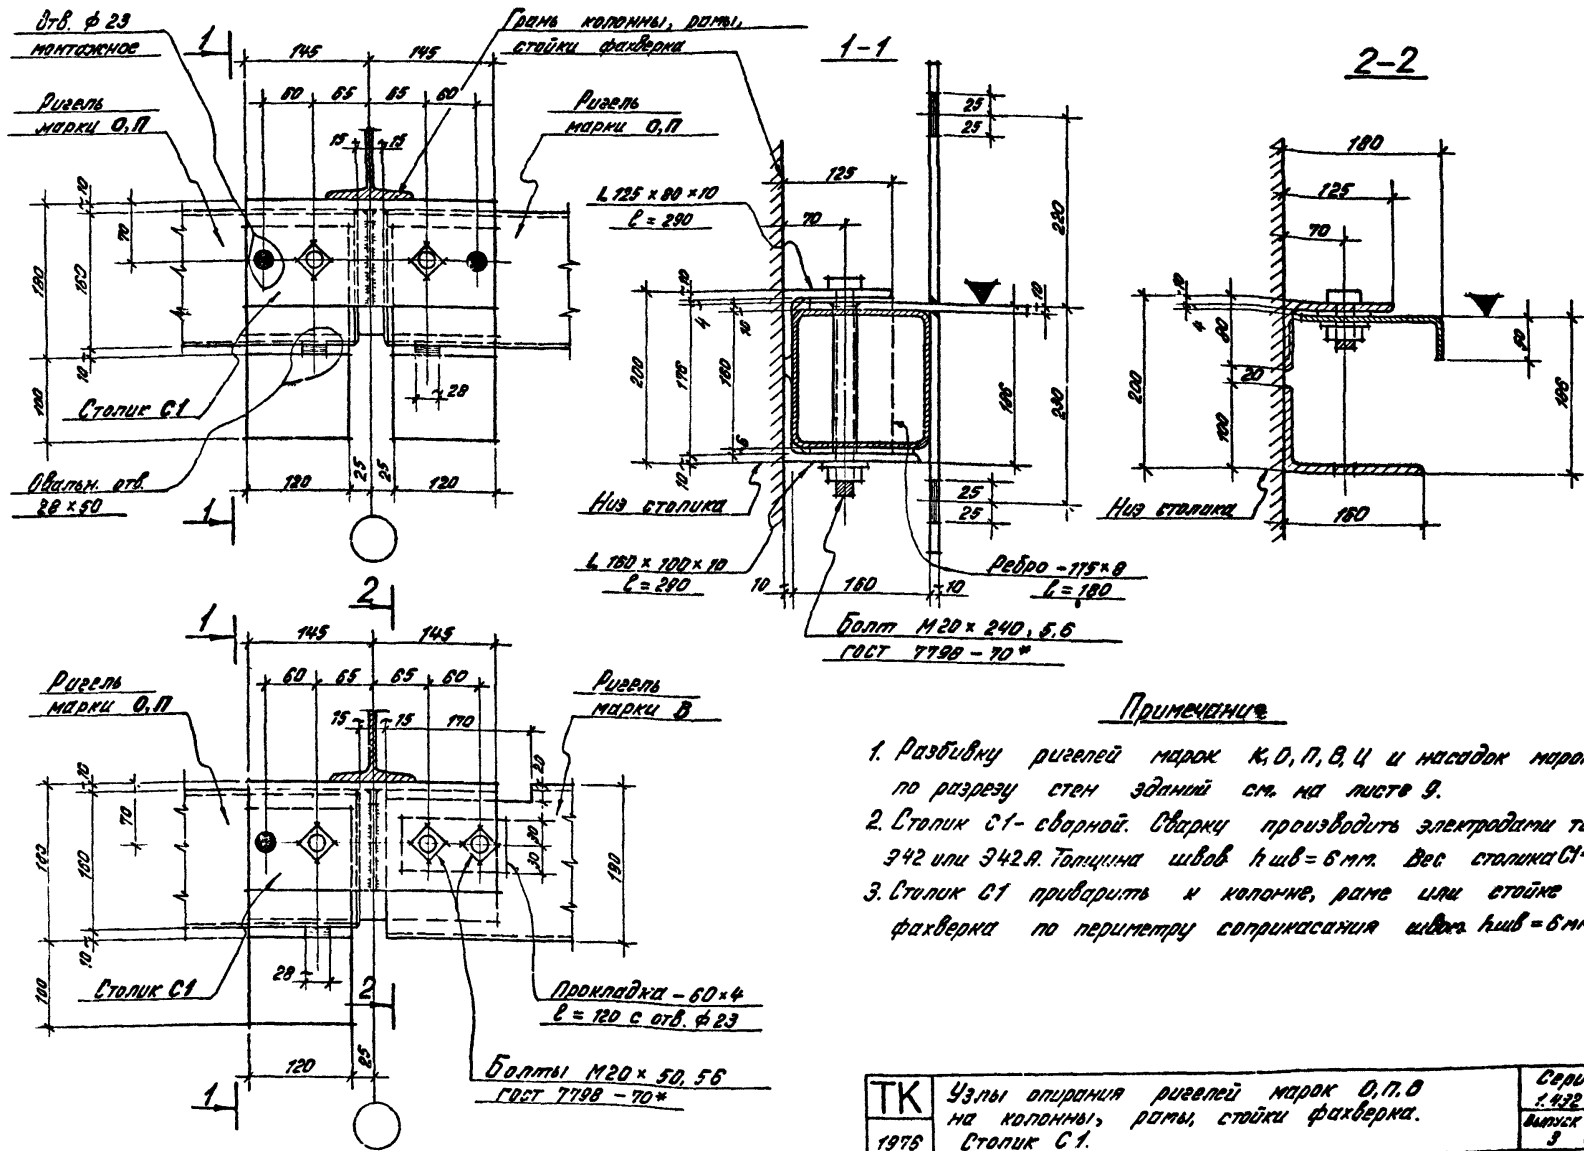 Отв. ф 23
монтажное
Грань колонны, рамы,
стойки фахверка
1
145
145
60
65
65
60
Ригель
марки О,П
Ригель
марки О,П
15
15
10
70
180
160
10
100
28
Столик С1
Овальн. отв.
28 × 50
120
25
25
120
1
1-1
25
25
125
L 125 × 80 × 10
ℓ = 290
70
220
10
4
10
10
200
176
160
186
230
6
10
25
25
Низ столика
L 160 × 100 × 10
ℓ = 290
10
160
10
Ребро - 115 × 8
ℓ = 180
Болт М20 × 240, 5.6
ГОСТ 7798 - 70*
2-2
180
125
70
10
4
80
20
100
200
50
186
Низ столика
160
1
2
145
145
60
65
65
60
Ригель
марки О,П
Ригель
марки В
15
15
170
10
70
20
30
30
160
190
10
100
28
2
Столик С1
Прокладка - 60×4
ℓ = 120 с отв. ф 23
120
25
Болты М20 × 50, 56
ГОСТ 7798 - 70*
1
Примечание
1. Разбивку ригелей марок К, О, П, В, Ц и насадок
по разрезу стен зданий см. на листе 9.
2. Столик С1 - сварной. Сварку производить электродами
Э42 или Э42А. Толщина швов hшв = 6 мм. Вес столика С1
3. Столик С1 приварить к колонне, раме или стойке
фахверка по периметру соприкасания швом hшв = 6 мм
ТК
1976
Узлы опирания ригелей марок О,П,В
на колонны, рамы, стойки фахверка.
Столик С1.
1.432
Выпуск
3